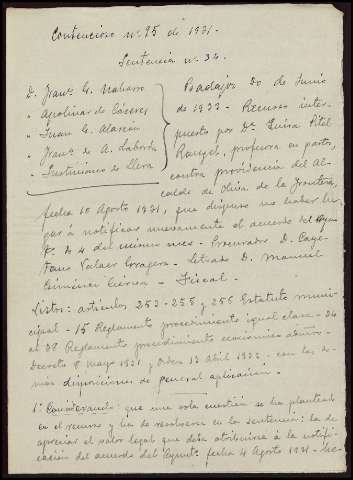 Contencioso nº 95 de 1931.-
Sentencia nº 32.
D. Franco G. Naharro
" Agolinar de Cáceres
" Juan G. Alarcón
" Franco de A. Laborda
" Justiniano de Llera
Badajoz 20 de Junio
de 1932 - Recurso inter-
puesto por Dª Luisa Pitel
Rangel, profesora en partos,
contra providencia del Al-
calde de Oliva de la Frontera,
fecha 10 Agosto 1931, que dispuso no haber lu-
gar á notificar nuevamente el acuerdo del Ayun
tº de 4 del mismo mes - Procurador D. Caye-
tano - Letrado D. Manuel
Giménez Cierva - Fiscal -
Vistos: artículos 253 - 255 y 256 Estatuto muni-
cipal - 15 Reglamento procedimiento igual clase - 34
al 38 Reglamento procedimiento económico admvo -
Decreto 8 mayo 1931 y Orden 13 Abril 1932 - con las de-
más disposiciones de general aplicación -
1º Considerando: que una sola cuestión se ha plantead
en el recurso y ha de resolverse en la sentencia: la de
apreciar el valor legal que deba atribuirse á la notifi-
cación del acuerdo del Ayuntº fecha 4 Agosto 1931 -